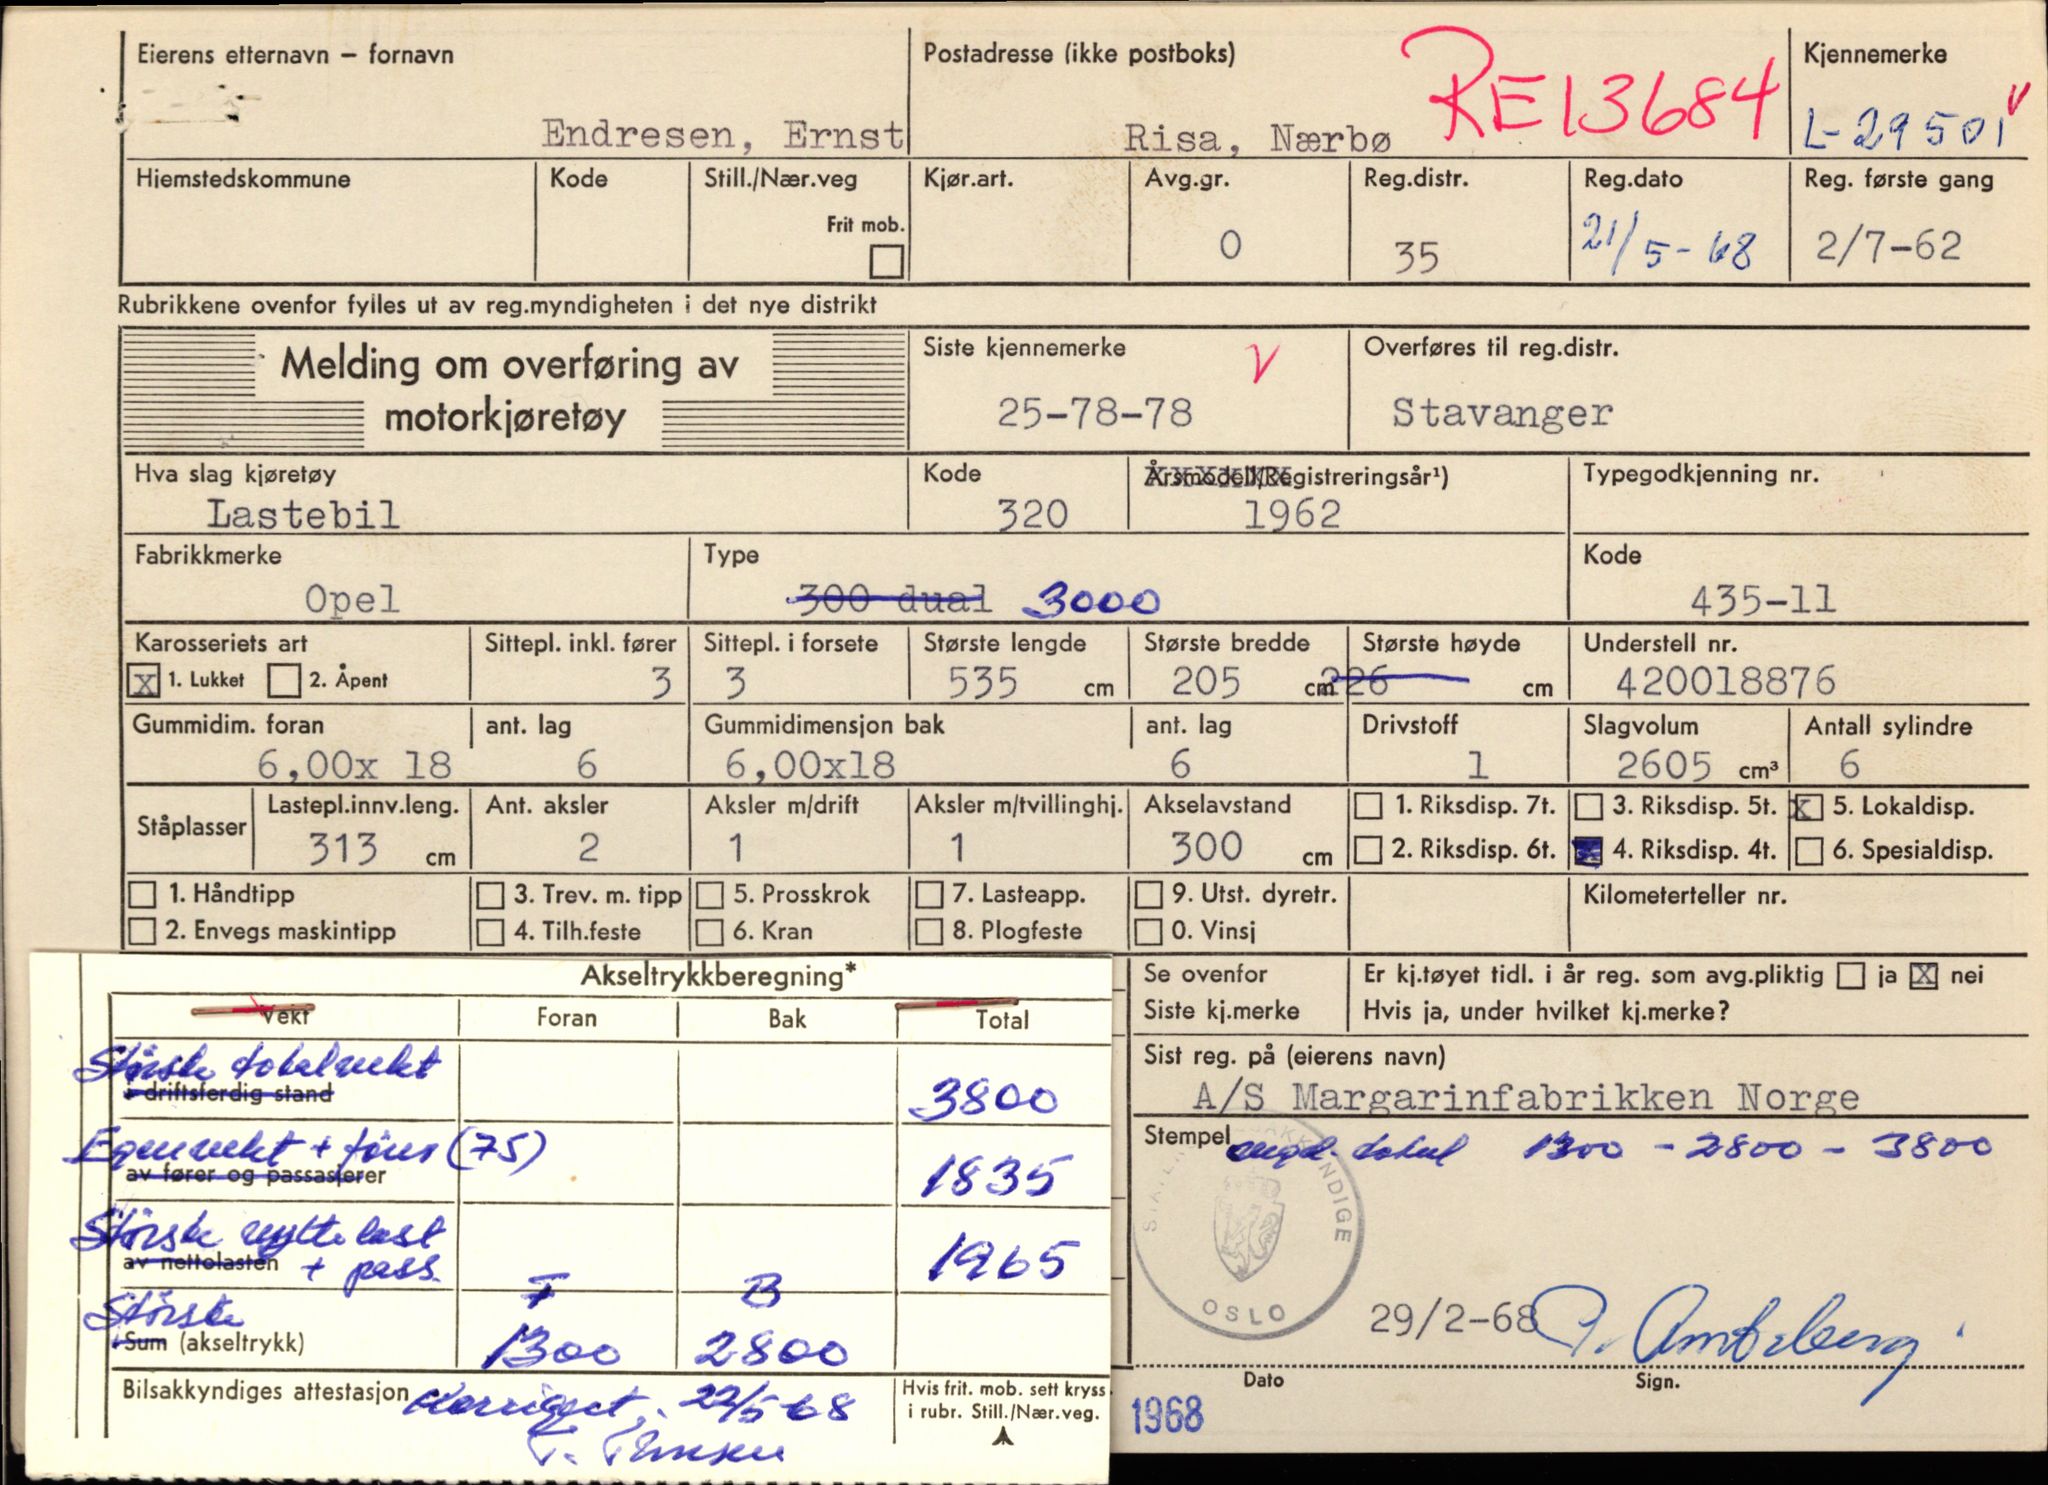 Eierens etternavn – fornavn
Endresen, Ernst
Postadresse (ikke postboks)
Risa, Nærbø
RE13684
Kjennemerke
L-29501 v
Hjemstedskommune
Kode
Still./Nær.veg
Frit mob.
Kjør.art.
Avg.gr.
0
Reg.distr.
35
Reg.dato
21/5-68
Reg. første gang
2/7-62
Rubrikkene ovenfor fylles ut av reg.myndigheten i det nye distrikt
Melding om overføring av
motorkjøretøy
Siste kjennemerke
25-78-78
V
Overføres til reg.distr.
Stavanger
Hva slag kjøretøy
Lastebil
Kode
320
Årsmodell/Registreringsår¹)
1962
Typegodkjenning nr.
Fabrikkmerke
Opel
Type
300 dual 3000
Kode
435-11
Karosseriets art
x 1. Lukket 2. Åpent
Sittepl. inkl. fører
3
Sittepl. i forsete
3
Største lengde
535 cm
Største bredde
205 cm
Største høyde
226 cm
Understell nr.
420018876
Gummidim. foran
6,00x 18
ant. lag
6
Gummidimensjon bak
6,00x18
ant. lag
6
Drivstoff
1
Slagvolum
2605 cm³
Antall sylindre
6
Ståplasser
Lastepl.innv.leng.
313 cm
Ant. aksler
2
Aksler m/drift
1
Aksler m/tvillinghj.
1
Akselavstand
300 cm
1. Riksdisp. 7t.
2. Riksdisp. 6t.
3. Riksdisp. 5t.
4. Riksdisp. 4t.
x 5. Lokaldisp.
6. Spesialdisp.
1. Håndtipp
2. Envegs maskintipp
3. Trev. m. tipp
4. Tilh.feste
5. Prosskrok
6. Kran
7. Lasteapp.
8. Plogfeste
9. Utst. dyretr.
0. Vinsj
Kilometerteller nr.
Akseltrykkberegning*
Vekt
Foran
Bak
Total
Største totalvekt
i driftsferdig stand
3800
Egenvekt + fører (75)
av fører og passasjerer
1835
Største nyttelast
av nettolasten + pass.
1965
F
B
Største
Sum (akseltrykk)
1300
2800
Bilsakkyndiges attestasjon
Korrigert, 22/5-68
Hvis frit. mob. sett kryss
i rubr. Still./Nær.veg.
Se ovenfor
Siste kj.merke
Er kj.tøyet tidl. i år reg. som avg.pliktig ja x nei
Hvis ja, under hvilket kj.merke?
Sist reg. på (eierens navn)
A/S Margarinfabrikken Norge
Stempel
total 1300 - 2800 - 3800
OSLO
29/2-68
Dato
Sign.
1968